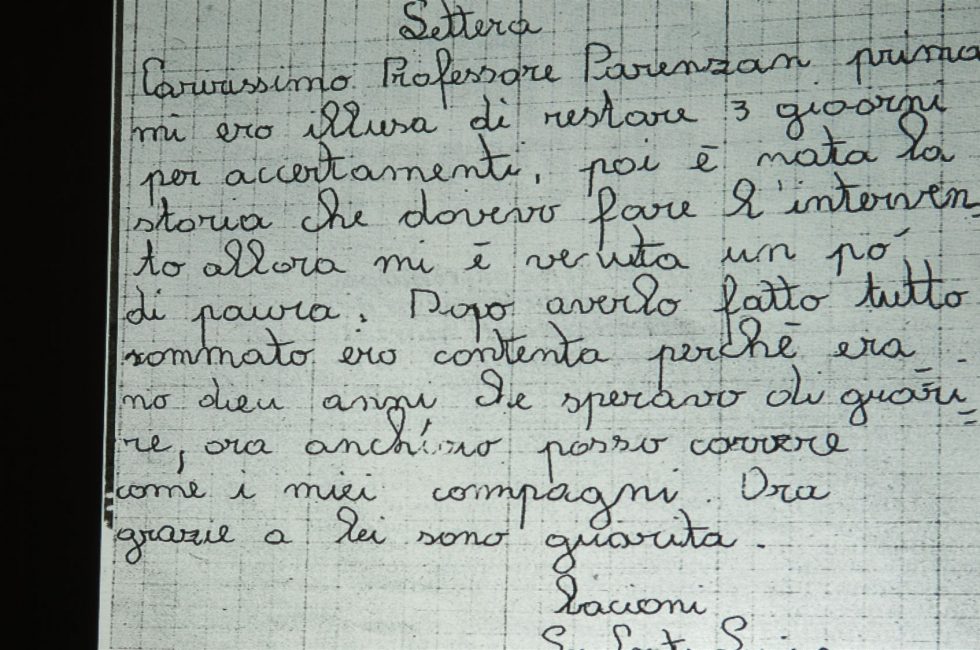 Lettera
Carissimo Professore Parenzan prima
mi ero illusa di restare 3 giorni
per accertamenti, poi è nata la
storia che dovevo fare l'interven
to allora mi è venuta un pó
di paura. Dopo averlo fatto tutto
sommato ero contenta perchè era
no dieci anni che speravo di guari
re, ora anch'io posso correre
come i miei compagni. Ora
grazie a lei sono guarita.
bacioni